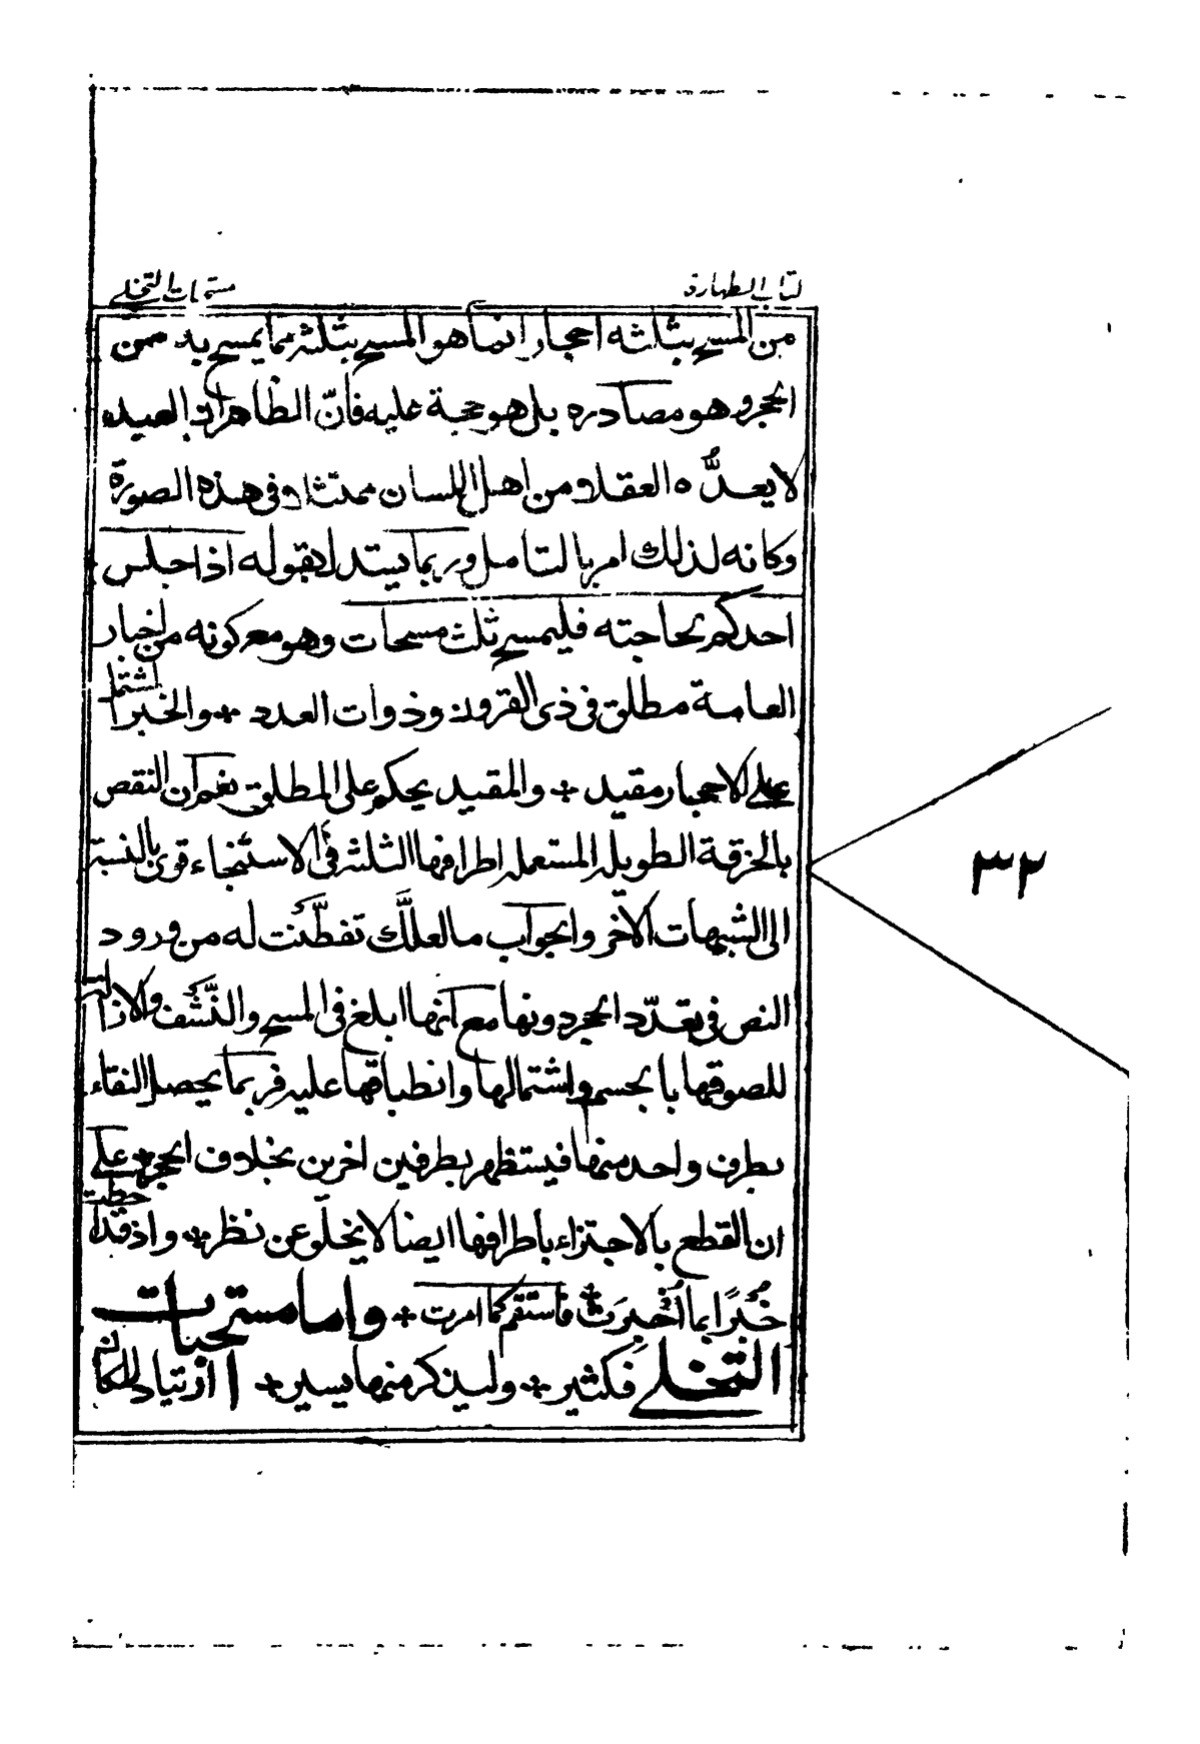 كتاب الطهارة
مستحبات التخلي
من المسح بثلثه احجار انما هو المسح بثلثة مما يمسح به من
الحجر وهو مصادره بل هو حجة عليه فانّ الظاهر ان العبد
لا يعدُّه العقلاء من اهل اللسان ممتثلا وفى هذه الصورة
وكانه لذلك امر بالتامل وربما يستدل بقوله اذا جلس
احدكم لحاجته فليمسح ثلث مسحات وهو مع كونه من اخبار
العامة مطلق فى ذى القرون وذوات العدد + والخبر المشتمل
على الاحجار مقيد + والمقيد يحكم على المطلق نعم ان النقص
بالخرقة الطويلة المستعملة اطرافها الثلثة فى الاستنجاء قوى بالنسبة
الى الشبهات الأخر والجواب ما لعلّك تفطّنت له من ورود
النص فى تعدّد الحجر دونها مع انها ابلغ فى المسح والنّشف والازالة
للصوقها بالجسم واشتمالها وانطباقها عليه فربما يحصل النقاء
بطرف واحد منها فيستظهر بطرفين اخرين بخلاف الحجر + على
ان القطع بالاجتزاء باطرافها ايضا لا يخلو عن نظر + واذ قد احطت
خُبْرًا بما اُخبِرَت فاستقم كما امرت + واما مستحبات
التخلي فكثير + ولنذكر منها يسير + ا ارتياد المكان
٣٢